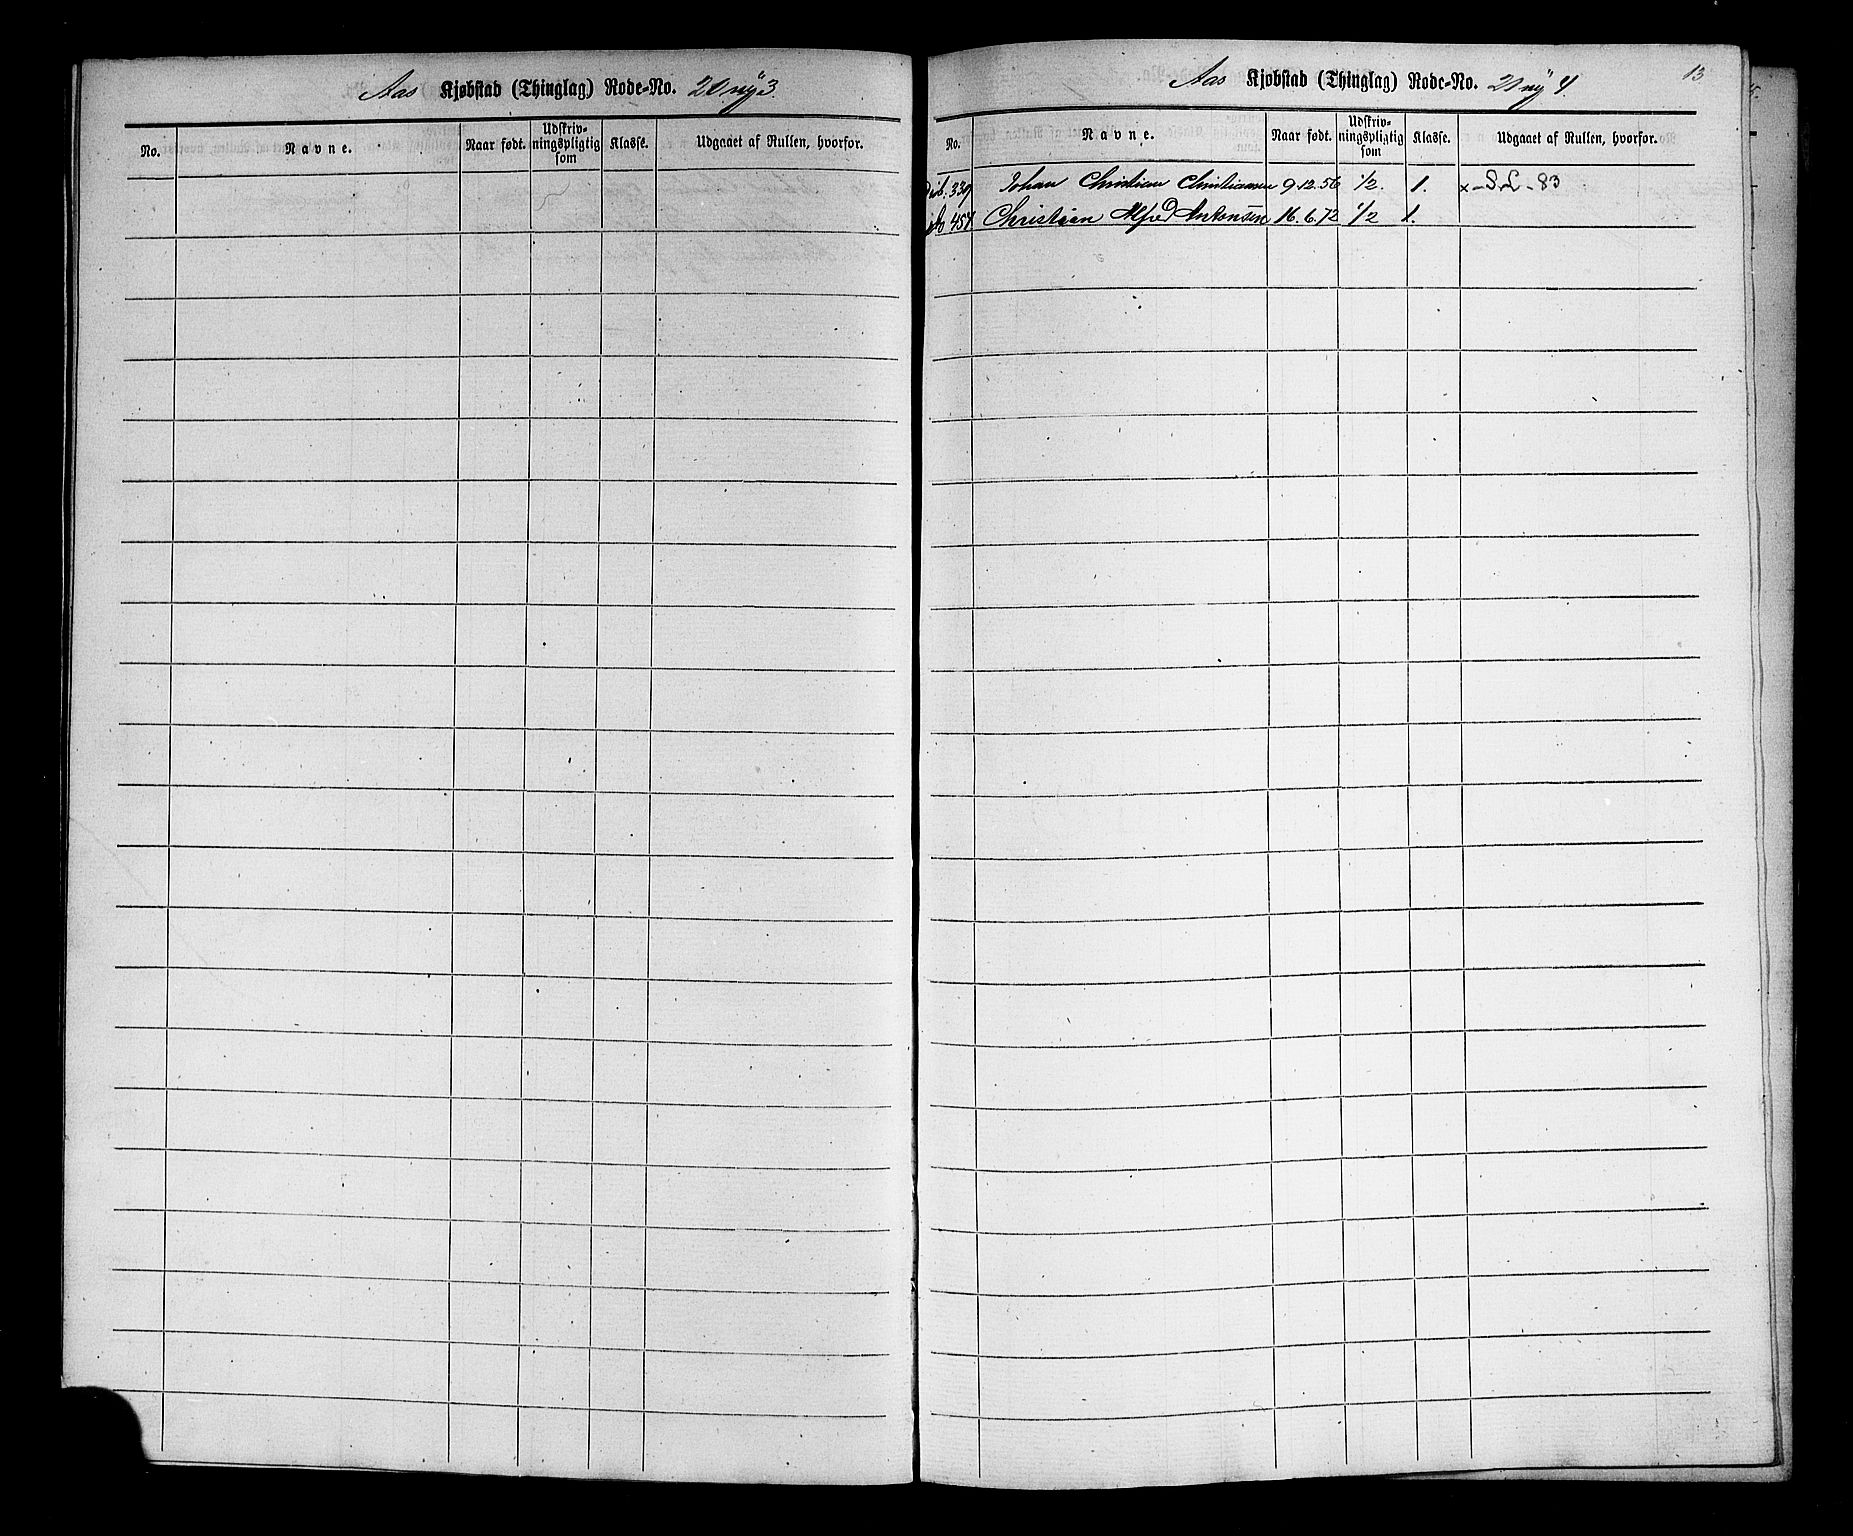 Aas Kjøbstad (Thinglag) Rode-No. 20 ny 3
No. Navne. Naar født. Udskriv-ningspligtig som Klasse. Udgaaet af Rullen, hvorfor.
13
Aas Kjøbstad (Thinglag) Rode-No. 21 ny 4.
No. Navne. Naar født. Udskriv-ningspligtig som Klasse. Udgaaet af Rullen, hvorfor.
339 Johan Christian Christiansen 9.12.56 1/2. 1. x-S.L-83
457 Christian Alfred Antonsen 16.6.72 1/2 1.